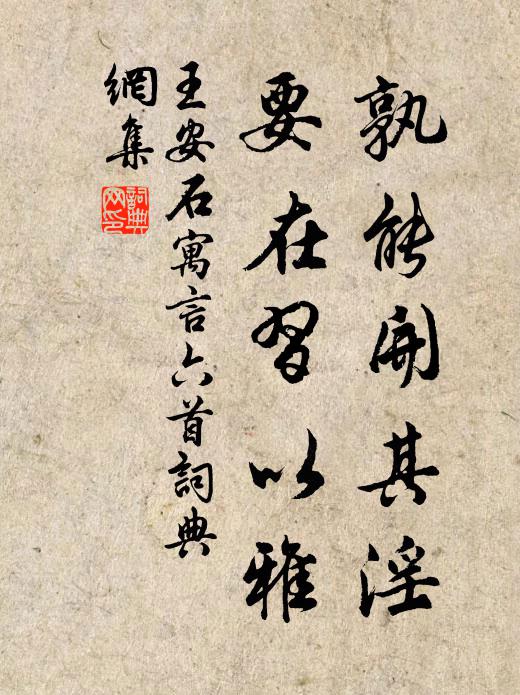 孰能開其淫
要在習以雅
王安石寓言六首詞典
網集
詞典網印